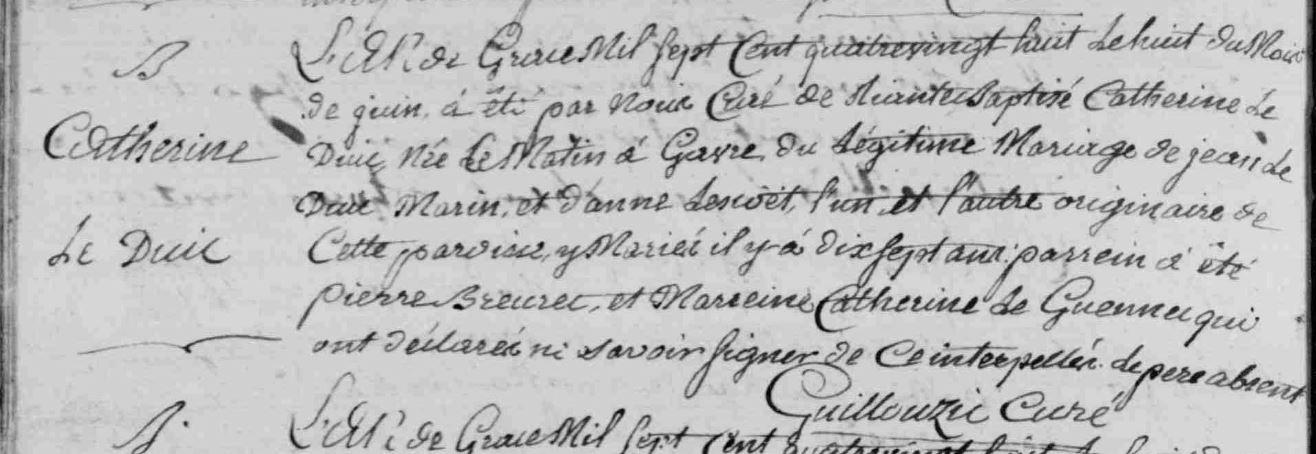 B
L'an de Grace Mil sept Cent quatrevingt huit Le huit du Mois
de juin, à été par nous Curé de Riantec Baptisé Catherine Le
Catherine
Duic Née Le Matin à Gavre, du Légitime Mariage de jean Le
Duic Marin, et d'anne Lescoët, l'un et l'autre originaire de
Le Duic
Cette paroisse, y Mariés il y à dix sept ans: parrein à été
pierre Breurec, et Marreine Catherine Le Guennec qui
ont déclarés ni savoir signer de Ce interpellés. Le pere absent
Guillouzic Curé
B.
L'an de Grace Mil sept Cent quatrevingt huit Le